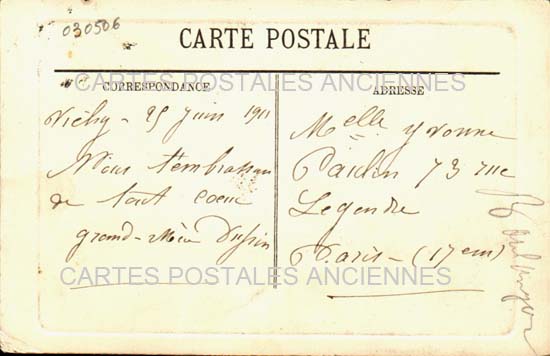 030506
CARTE POSTALE
CARTES POSTALES ANCIENNES
CORRESPONDANCE
ADRESSE
Vichy - 25 Juin 1911
Nous t'embrassons
de tout coeur
grand-Mère
Melle Yvonne
73 rue
Legendre
Paris - (17em)
CARTES POSTALES ANCIENNES